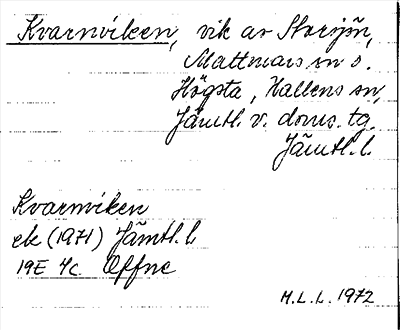 Kvarnviken, vik av Storsjön,
Mattmars sn o.
Högsta, Hallens sn,
Jämtl. v. doms. tg.
Jämtl. l.
Kvarnviken
ek (1971) Jämtl. l.
19E 4c. Offne
M.L.L. 1972